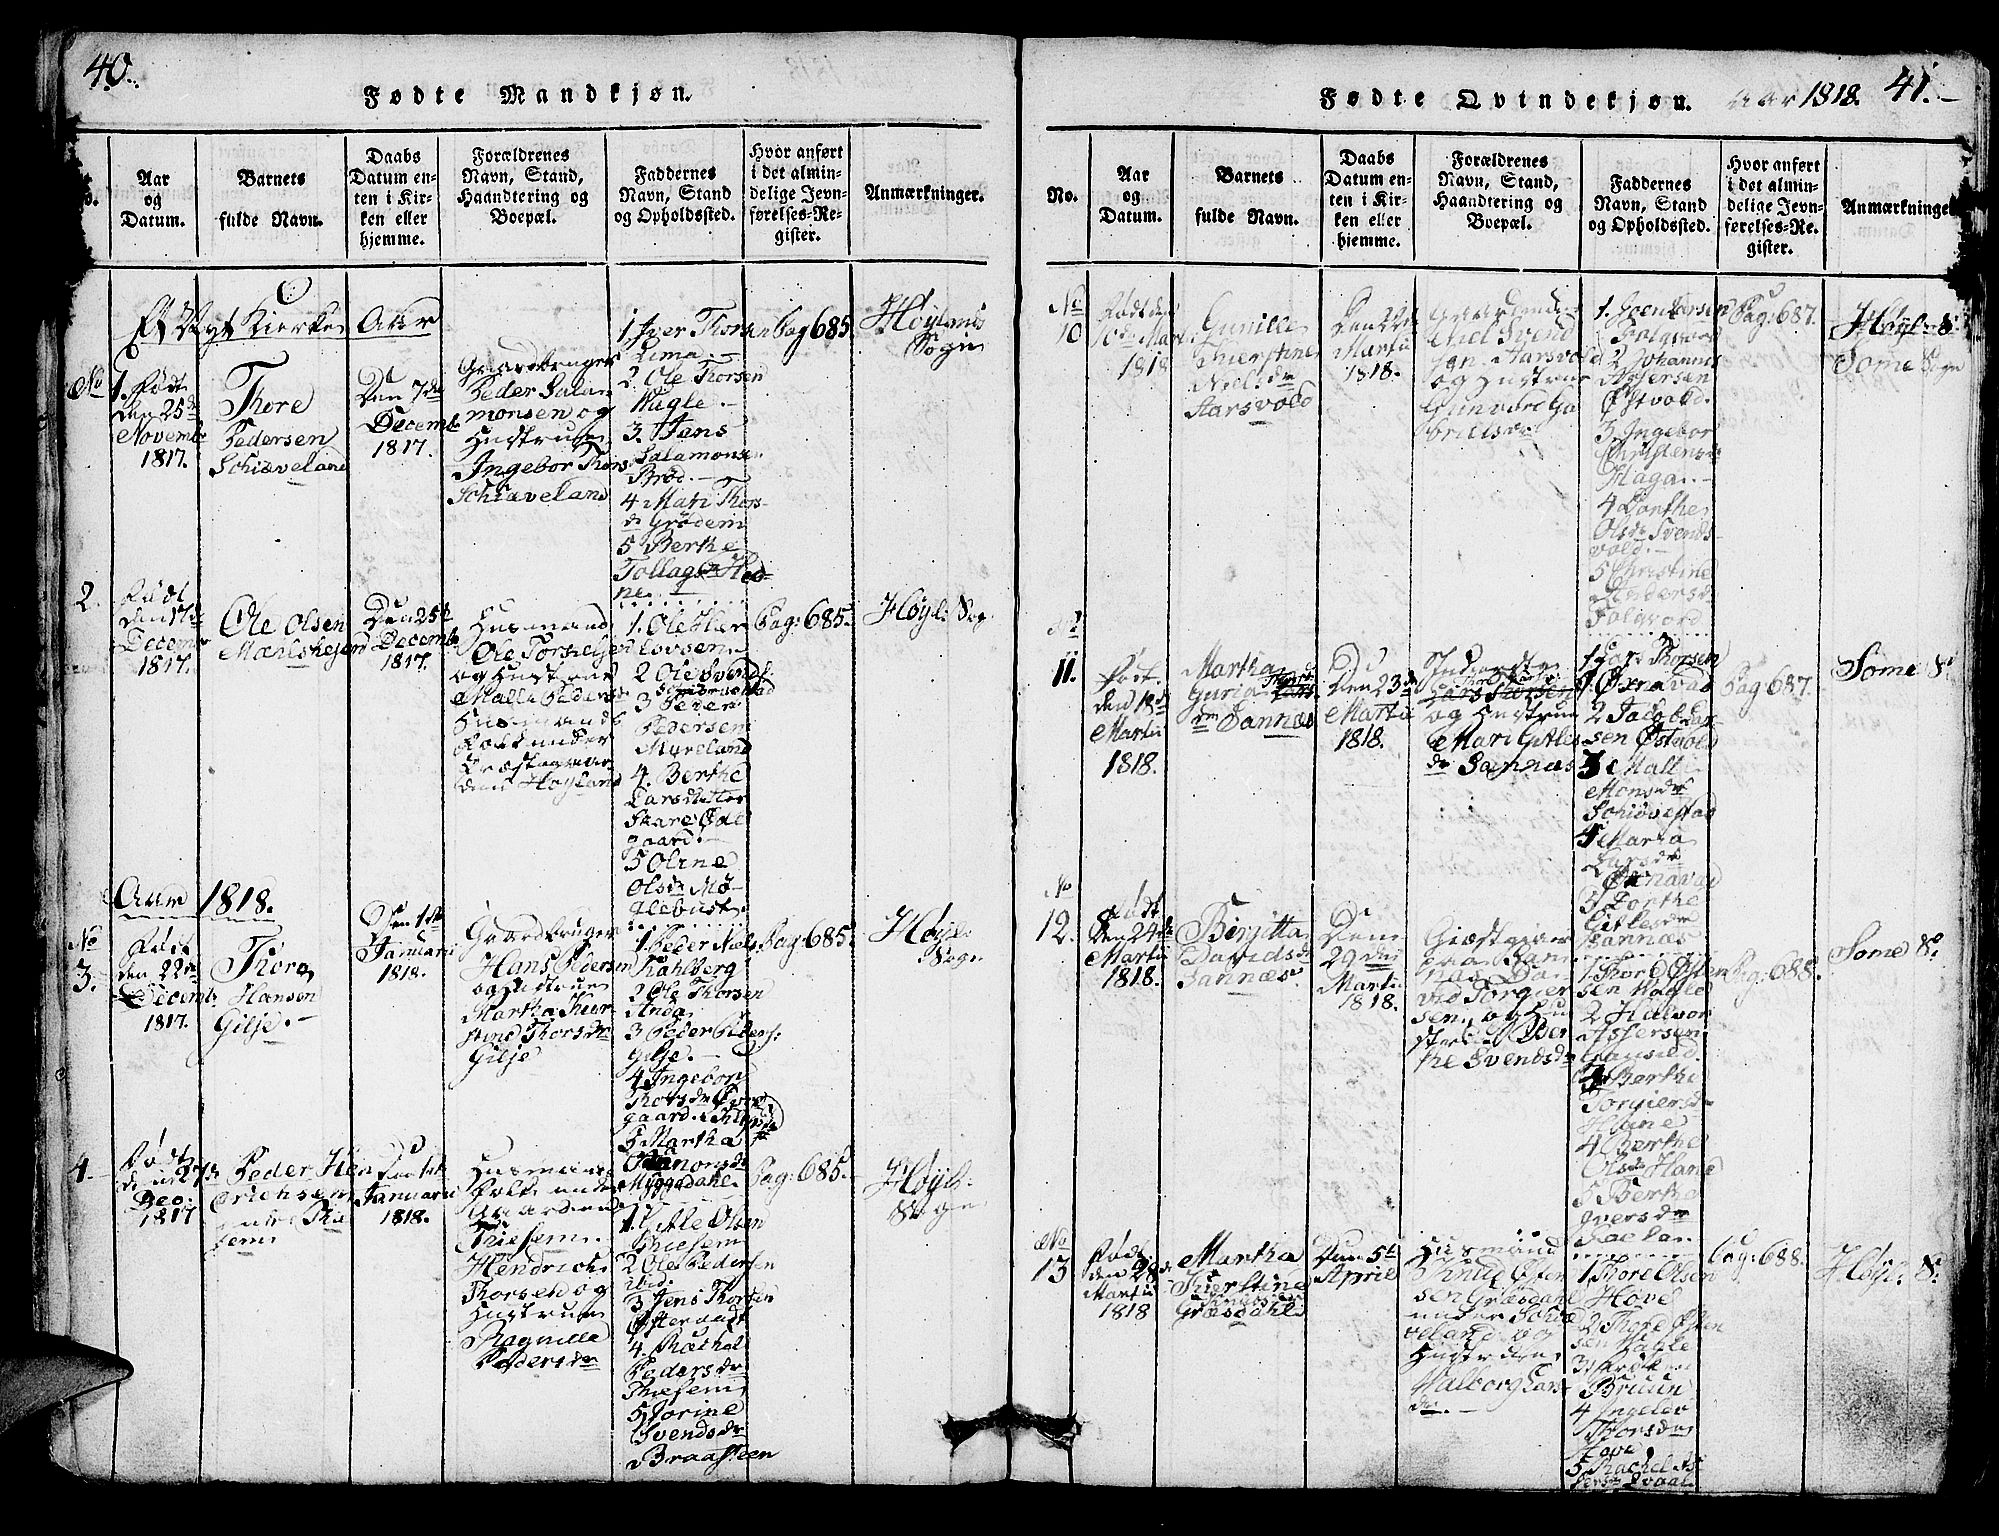 40.
Fødte Mandkjøn.
Aar
og
Datum.
Barnets
fulde Navn.
Daabs
Datum en-
ten i Kir-
ken eller
hjemme.
Forældrenes
Navn, Stand,
Haandtering og
Boepæl.
Faddernes
Navn, Stand
og Opholdssted.
Hvor anført
i det almin-
delige Jevn-
førelses-Re-
gister.
Anmærkninger.
Et Nyt Kierke Aar
No
1. Født
den 25de
Novembr
1817.
Thore
Pedersen
Schiæveland
Den 7de
Decemb
1817.
Gaardbruger
Peder Sala
monsen og
Hustrue
Ingebor Thors
Schiæveland
1 Iver Thorsen
Lima.
2. Ole Thorsen
Vagle.
3. Hans
Salamons.
Brød.
4 Mari Thors-
dr Grødem
5 Berthe
Tollagsdr Hed-
ne.
Pag 685
Høylands
Sogn
2.
Født
den 17de
Decembr
1817.
Ole Olsen
Den 25de
Decemb
1817.
Husmand
Ole
og Hustrue
Malle Peders
Husmands
Folk under
Præstegaar
den Høyland
1. Ole
2 Ole Svends.
3 Peder
Pedersen
Myreland
4. Berthe
Larsdatter
Skare Øde
gaard.
5 Oline
Olsdr
Pag: 685.
Høyl: Sog.
Aar 1818.
No
3.
Født
den 22de
Decemb
1817.
Thore
Hansen
Gilje.
Den 1ste
Januarii
1818.
Gaardbruger
Hans Pedersen
og Hustrue
Martha Kier
stine Thorsdr
Gilje
1. Peder Niels
Kahlberg
2 Ole Thorsen
Anda
3 Peder Peders.
Gilje.
4 Ingebor
Thorsdr Øde
gaard.
5 Martha
Myggedahl.
Pag: 685.
Høyl:
Sogn
4.
Født
den 27de
Dec:
1817
Peder Hen
drichsen
under Thie
sem
Januarii
1818.
Husmands
Folk under
Gaarden
Thiesem.
Hendrich
Thorsen og
Hustrue
Ragnilda
Pedersdr
1. Atle Olsen
Thiesem
2 Ole Pedersen
ibid.
3 Jens Thorsen
4. Rachel
Pedersdr
Thiesem
5 Jorine
Svendsdr
Braasteen
Pag: 685.
Høyl:
Sogn
Fødte Qvindekjøn. Aar 1818. 41.
No.
Aar
og
Datum.
Barnets
fulde Navn.
Daabs
Datum en-
ten i Kir-
ken eller
hjemme.
Forældrenes
Navn, Stand,
Haandtering og
Boepæl.
Faddernes
Navn, Stand
og Opholdssted.
Hvor anført
i det almin-
delige Jevn-
førelses-Re-
gister.
Anmærkninger
No
10
Født den
10de Marti
1818
Gunille
Chierstine
Nielsdr
Aarsvold
Den 22de
Martii
1818.
Niel Svend
sen Aarsvold
og Hustrue
Gunvord Ga
brielsdr
2 Johannes
Assersen
Østvold.
3 Ingebor
Christensdr
Haga.
4 Dorthe
Olsdr Svends-
vold.
5 Christine
Andersdr
Folgvord
Pag: 687.
Høyl: S:
Some Sogn
11.
Født
den 18de
Martii
1818.
Martha
Guria
Sannæs
Den 23de
Martii
1818.
Lars Thorsen
og Hustrue
Mari Gitles
dr Sannæs
1 Lars Thorsen
Øxnavad
2 Jacob Lar-
sen Østvold
3 Malli
Monsdr
4 Marta
Larsdr
Øxnavad
Dorthe
Gitlesdr
Sannæs
Pag: 687.
Some S:
No
12.
Født
Den 24de
Martii
1818.
Birgitta
Davidsdr
Sannæs.
Den
29de
Martii
1818.
Giæstgiver
San
næs Da-
vid Torgier
sen, og Hu
Ber
the Svendsdr
1 Thore Østen
sen Wagle
2 Halvor
Assersen
Berthe
Torgiersdr
Hane
4 Berthe
Olsdr Hane
5 Berthe
Iversdr
Pag: 688.
Some S:
No
13
Født
den 28de
Martii
1818
Martha
Kierstine
Græsdahl
Den 5te
April
Husmand
Knud Østen
sen Græsdahl
under Schiæ
veland og
Hustrue
Walborg Lars
dr.
1 Thore Olsen
Hove
2 Thore Østen
sen Vagle
Bruun
4 Ingebor
Thorsdr
Hove
5 Rachel
Pag: 688.
Høyl: S: